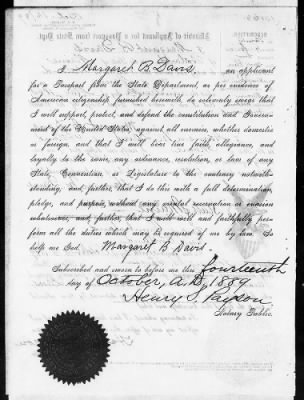 I Margaret B. Davis an applicant
for a Passport from the State Department, as per evidence of
American citizenship furnished herewith, do solemnly swear that
I will support, protect, and defend the constitution and Govern-
ment of the United States, against all enemies, whether domestic
or foreign, and that I will bear true faith, allegiance, and
loyalty to the same, any ordinance, resolution, or law of any
State, Convention or Legislature to the contrary notwith-
standing, and further, that I do this with a full determination,
pledge, and purpose, without any mental reservation or evasion
whatsoever, and, further, that I will well and faithfully per-
form all the duties which may be required of me by law. So
help me God. Margaret B Davis.
Subscribed and sworn to before me this fourteenth
day of October, A.D. 1889
Henry S.
Notary Public.